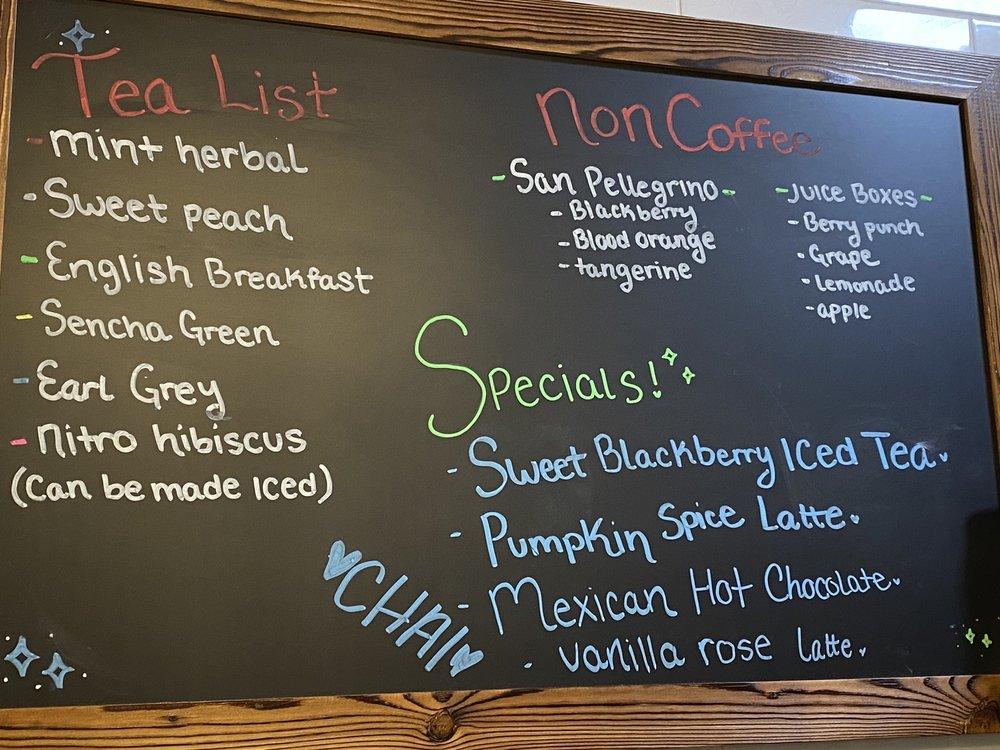 Tea List
- mint herbal
- Sweet peach
- English Breakfast
- Sencha Green
- Earl Grey
- nitro hibiscus
(Can be made Iced)
non Coffee
- San Pellegrino -
- Blackberry
- Blood orange
- tangerine
- Juice Boxes -
- Berry punch
- Grape
- lemonade
- apple
Specials!
- Sweet Blackberry Iced Tea
- Pumpkin Spice Latte
- Mexican Hot Chocolate
- vanilla rose latte
CHAI